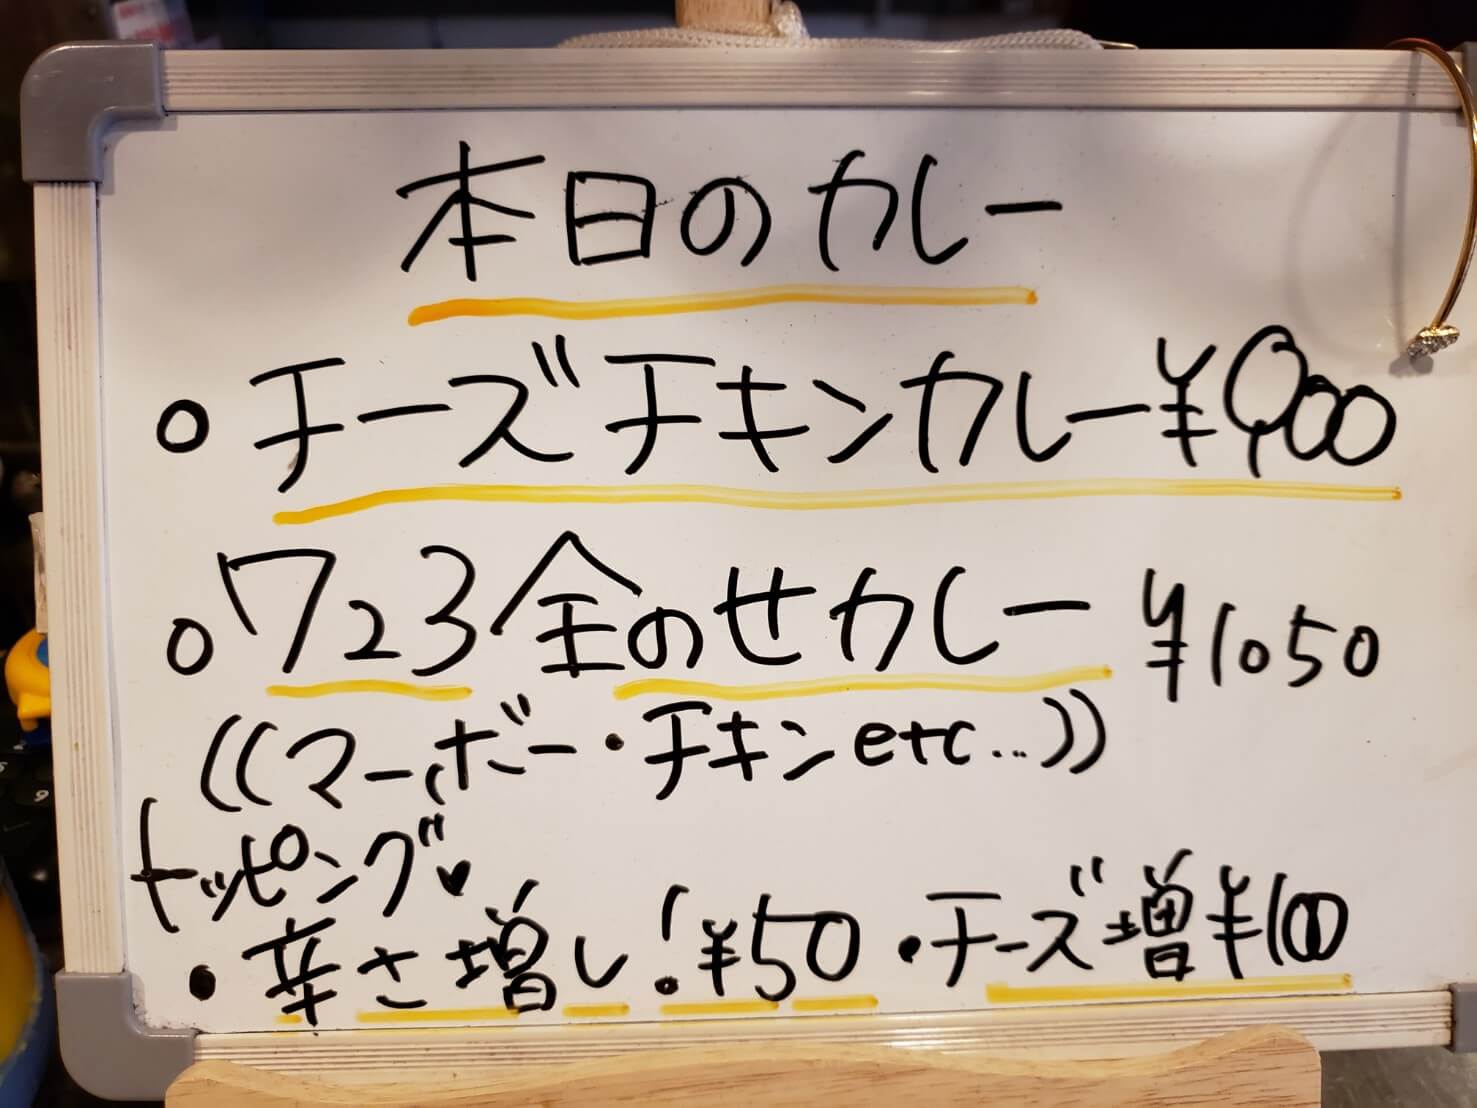 本日のカレー
○チーズチキンカレー¥900
○723全のせカレー ¥1050
((マーボー・チキンetc...))
トッピング♥
・辛さ増し!¥50 ・チーズ増¥100